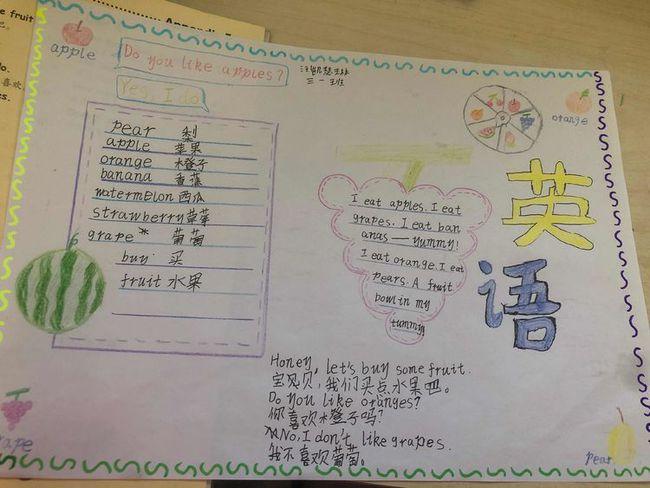 apple
Do you like apples?
Yes, I do
三一班
orange
pear 梨
apple 苹果
orange 橙子
banana 香蕉
watermelon 西瓜
strawberry 草莓
grape* 葡萄
buy 买
fruit 水果
I eat apples. I eat
grapes. I eat ban
anas — yummy!
I eat orange. I eat
pears. A fruit
bowl in my
tummy
英
语
Honey, let's buy some fruit.
宝贝,我们买点水果吧。
Do you like oranges?
你喜欢橙子吗?
No. I don't like grapes.
我不喜欢葡萄。
rape
pear